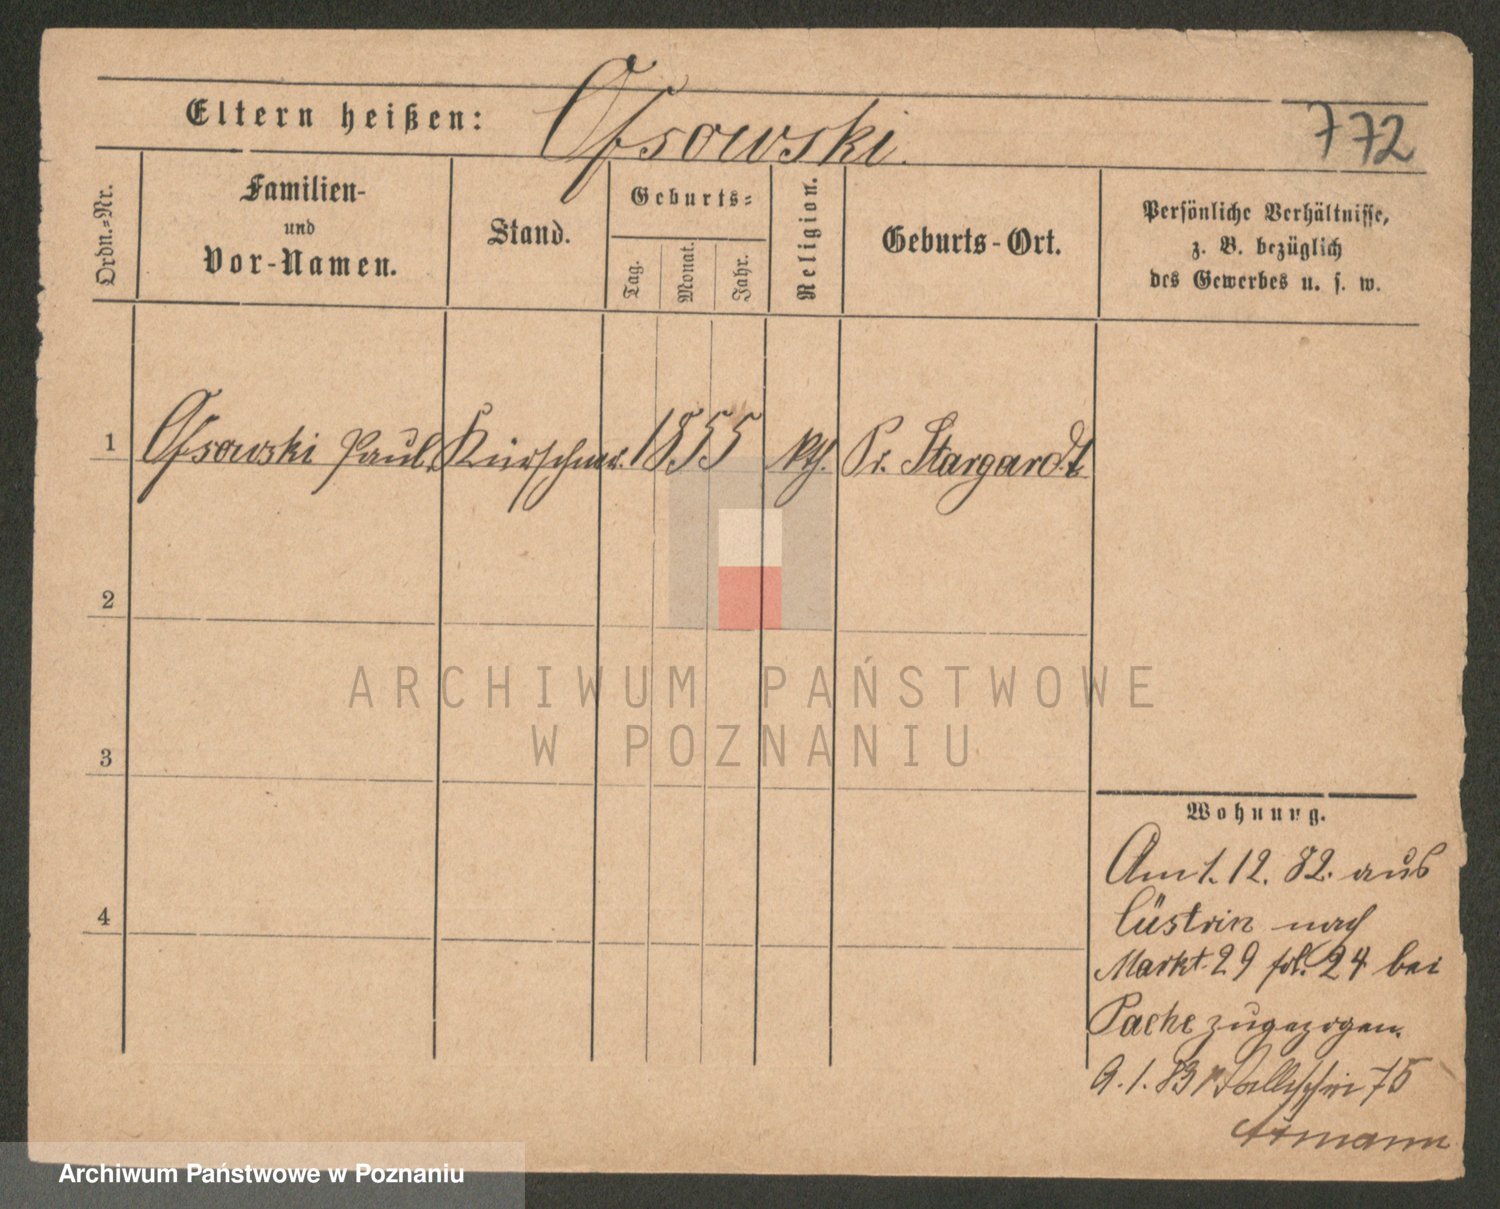 Eltern heißen: Ossowski.
772
Ordn.-Nr.
Familien-
und
Vor-Namen.
Stand.
Geburts-
Tag.
Monat.
Jahr.
Religion.
Geburts-Ort.
Persönliche Verhältnisse,
z. B. bezüglich
des Gewerbes u. s. w.
1 Ossowski Paul. Kürschner. 1855 kth. Pr. Stargardt
2
ARCHIWUM PAŃSTWOWE
W POZNANIU
3
Wohnung.
Am 1. 12. 82. aus
Cüstrin nach
4
Markt 29 fol. 24 bei
Pache zugezogen.
9. 1. 83 75
Archiwum Państwowe w Poznaniu